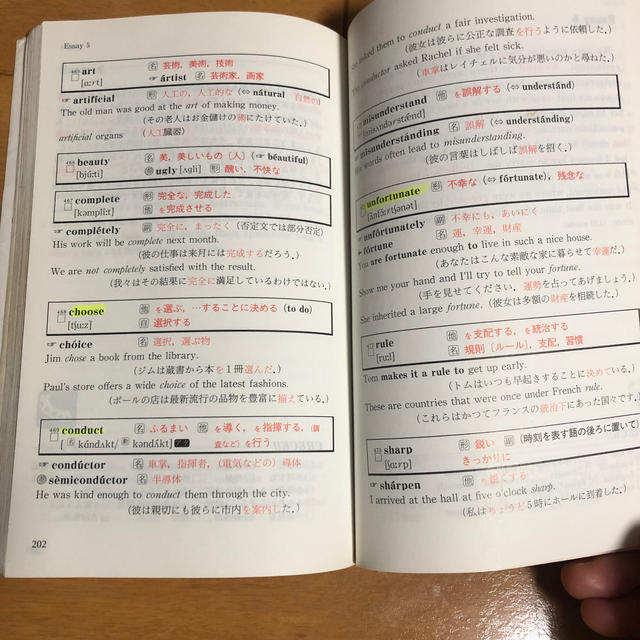 Essay 5
art 名 芸術, 美術, 技術
[ɑːrt] ☞ ártist 名 芸術家, 画家
☞ artificial 形 人工の, 人工的な (⇔ nátural 自然の)
The old man was good at the art of making money.
(その老人はお金儲けの術にたけていた.)
artificial organs (人工臓器)
beauty 名 美, 美しいもの〔人〕(☞ béautiful)
[bjúːti] ugly [ʌgli] 形 醜い, 不快な
complete 形 完全な, 完成した
[kəmplíːt] 他 を完成させる
☞ complétely 副 完全に, まったく (否定文では部分否定)
His work will be complete next month.
(彼の仕事は来月には完成するだろう.)
We are not completely satisfied with the result.
(我々はその結果に完全に満足しているわけではない.)
choose 他 を選ぶ, …することに決める (to do)
[tʃuːz] 自 選択する
☞ chóice 名 選択, 選ぶ物
Jim chose a book from the library.
(ジムは蔵書から本を1冊選んだ.)
Paul's store offers a wide choice of the latest fashions.
(ポールの店は最新流行の品物を豊富に揃えている.)
469 conduct 名 ふるまい 他 を導く, を指揮する, (調
[名 kándʌkt/ 動 kəndʌ́kt] 査など) を行う
☞ condúctor 名 車掌, 指揮者, (電気などの) 導体
sèmicondúctor 名 半導体
He was kind enough to conduct them through the city.
(彼は親切にも彼らに市内を案内した.)
202
asked them to conduct a fair investigation.
(彼女は彼らに公正な調査を行うように依頼した.)
conductor asked Rachel if she felt sick.
(車掌はレイチェルに気分が悪いのかと尋ねた.)
misunderstand 他 を誤解する (⇔ understánd)
misunderstánding 名 誤解 (⇔ understánding)
His words often lead to misunderstanding.
(彼の言葉はしばしば誤解を招く.)
unfortunate 形 不幸な (⇔ fórtunate), 残念な
unfórtunately 副 不幸にも, あいにく
fórtune 名 運, 幸運, 財産
You are fortunate enough to live in such a nice house.
(あなたはこんな素敵な家に暮らせて幸運だ.)
Show me your hand and I'll try to tell your fortune.
(手を見せてください. 運勢を占ってあげましょう.)
She inherited a large fortune. (彼女は多額の財産を相続した.)
rule 他 を支配する, を統治する
[ruːl] 名 規則〔ルール〕, 支配, 習慣
Tom makes it a rule to get up early.
(トムはいつも早起きすることに決めている.)
These are countries that were once under French rule.
(これらはかつてフランスの統治下にあった国々です.)
sharp 形 鋭い 副 (時刻を表す語の後ろに置いて)
[ʃɑːrp] きっかりに
☞ shárpen 他 を鋭くする
I arrived at the hall at five o'clock sharp.
(私はちょうど5時にホールに到着した.)